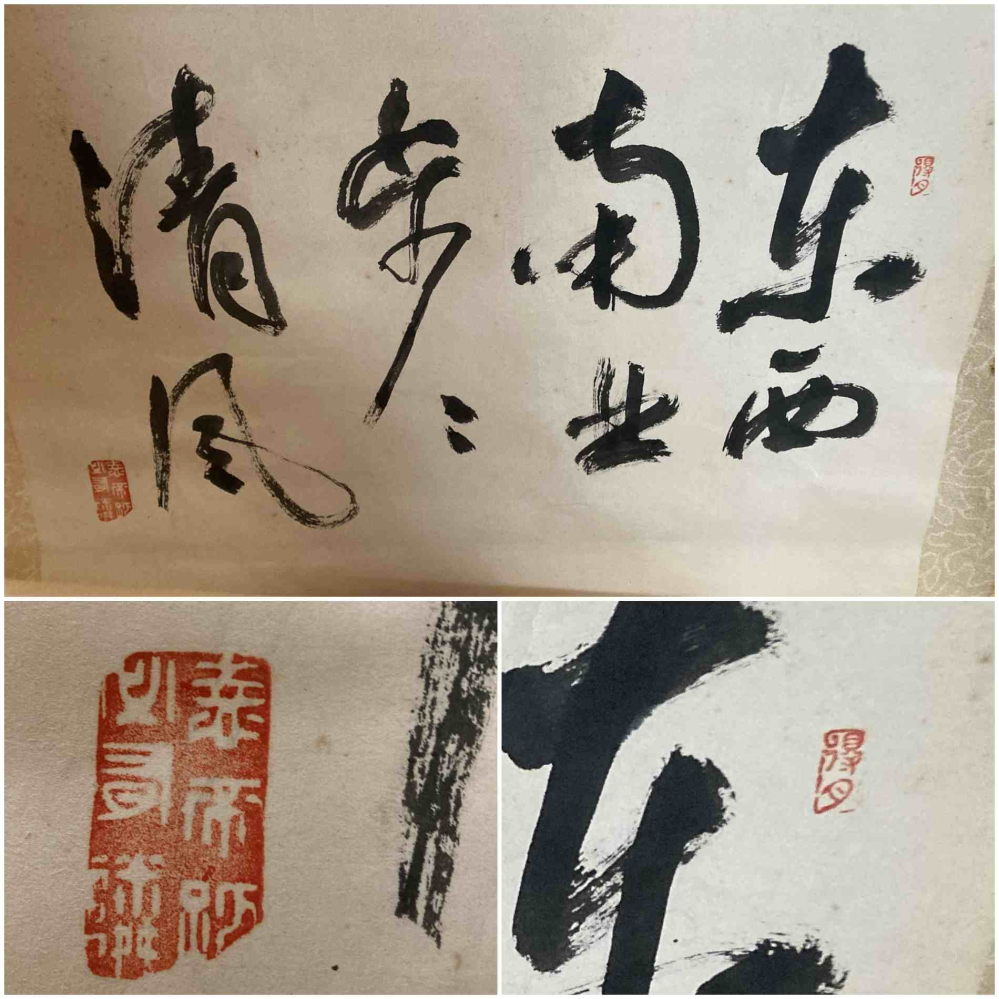 得月
東西
南北
歩々
清風